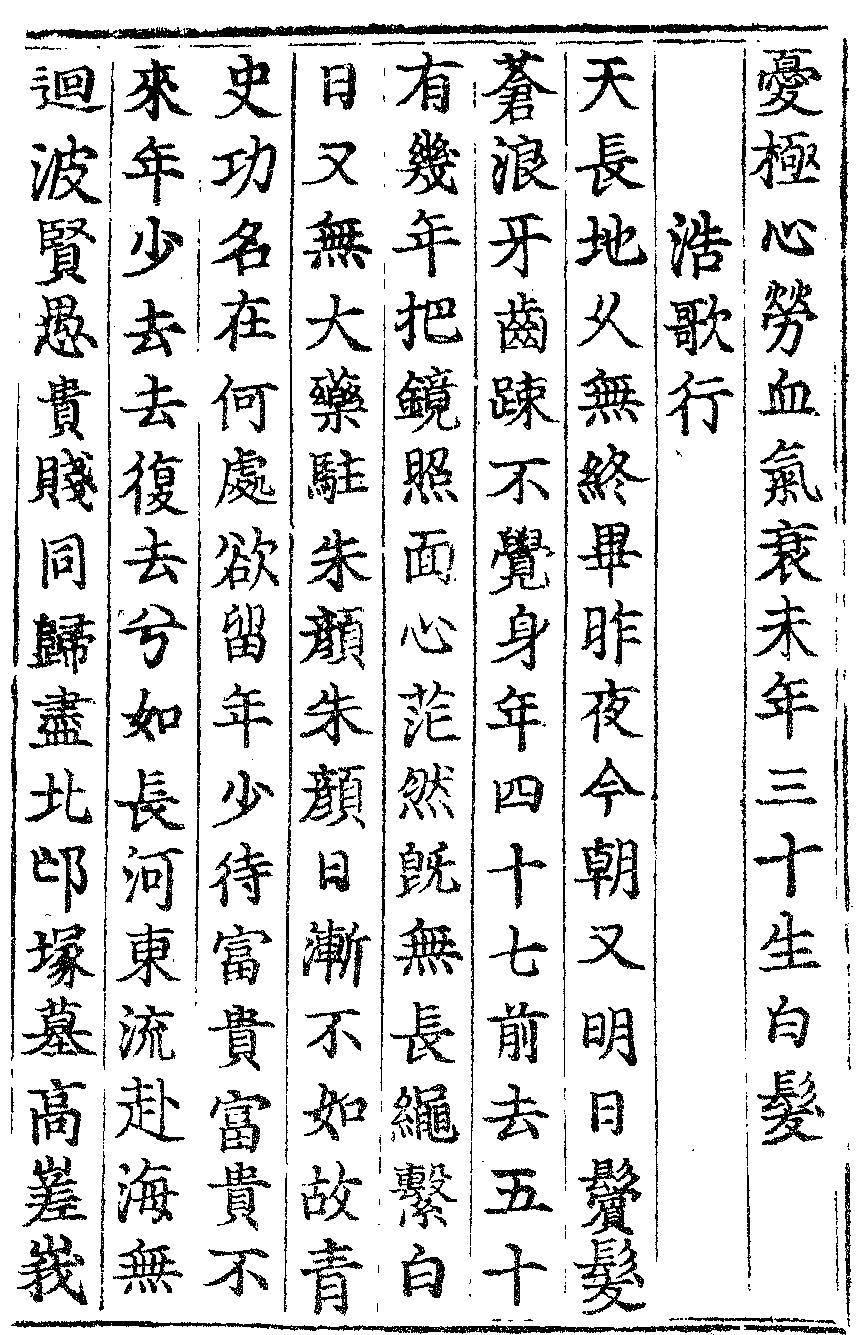 憂極心勞血氣衰未年三十生白髮
浩歌行
天長地乆無終畢昨夜今朝又明日鬢髮
蒼浪牙齒踈不覺身年四十七前去五十
有幾年把鏡照面心茫然旣無長繩繫白
日又無大藥駐朱顔朱顔日漸不如故青
史功名在何處欲留年少待富貴富貴不
來年少去去復去兮如長河東流赴海無
迴波賢愚貴賤同歸盡北邙塚墓高嵳峩